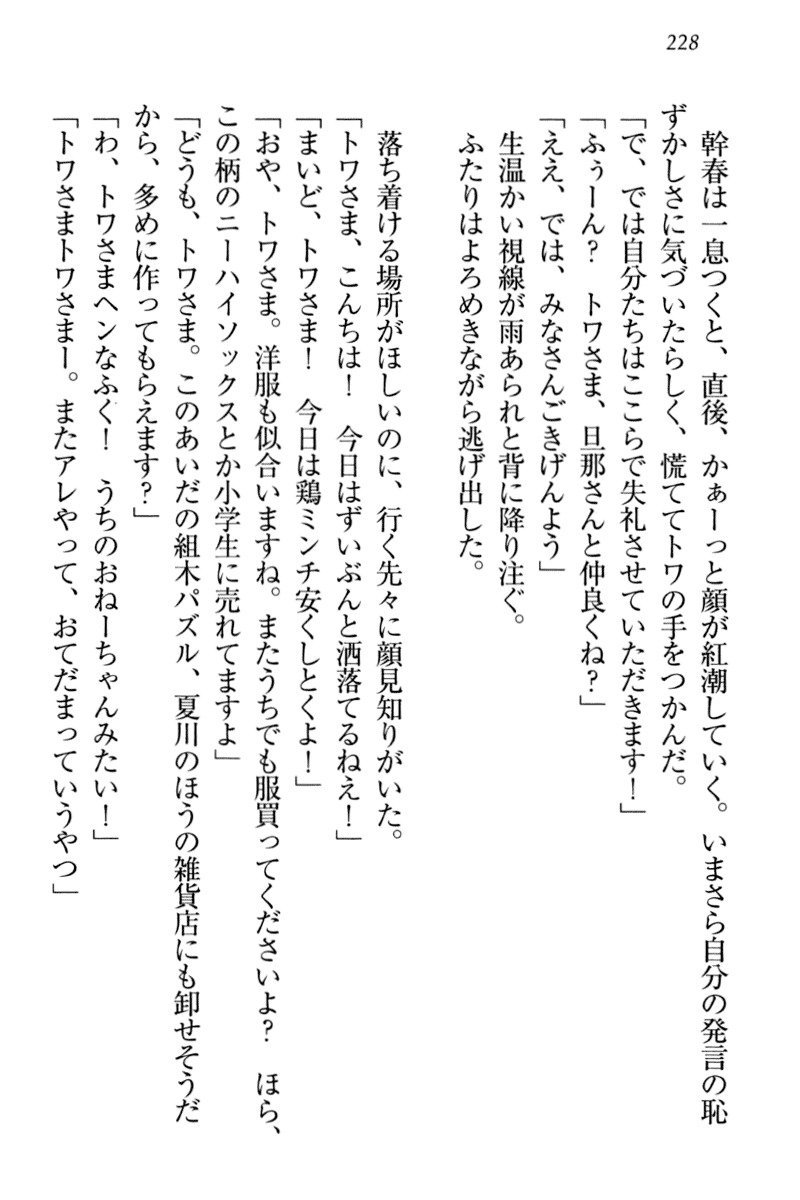 228
幹春は一息つくと、直後、かぁーっと顔が紅潮していく。いまさら自分の発言の恥
ずかしさに気づいたらしく、慌ててトワの手をつかんだ。
「で、では自分たちはここらで失礼させていただきます！」
「ふぅーん？　トワさま、旦那さんと仲良くね？」
「ええ、では、みなさんごきげんよう」
生温かい視線が雨あられと背に降り注ぐ。
ふたりはよろめきながら逃げ出した。
落ち着ける場所がほしいのに、行く先々に顔見知りがいた。
「トワさま、こんちは！　今日はずいぶんと洒落てるねえ！」
「まいど、トワさま！　今日は鶏ミンチ安くしとくよ！」
「おや、トワさま。洋服も似合いますね。またうちでも服買ってくださいよ？　ほら、
この柄のニーハイソックスとか小学生に売れてますよ」
「どうも、トワさま。このあいだの組木パズル、夏川のほうの雑貨店にも卸せそうだ
から、多めに作ってもらえます？」
「わ、トワさまヘンなふく！　うちのおねーちゃんみたい！」
「トワさまトワさまー。またアレやって、おてだまっていうやつ」